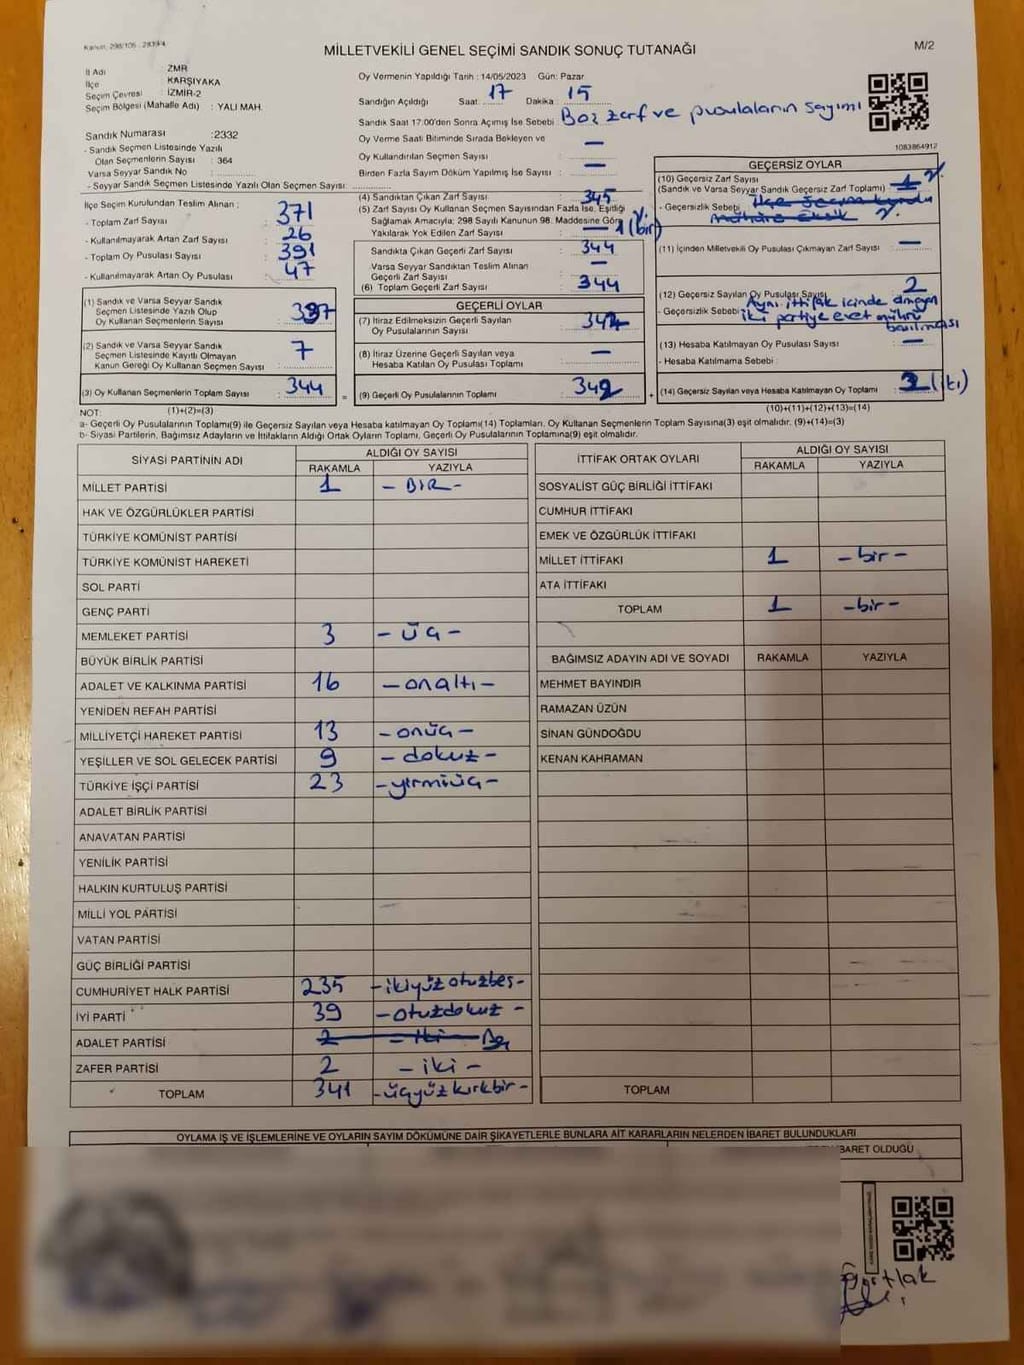 Kanun, 298/105 : 2839/4
MİLLETVEKİLİ GENEL SEÇİMİ SANDIK SONUÇ TUTANAĞI
M/2
İl Adı : İZMİR
İlçe : KARŞIYAKA
Seçim Çevresi : İZMİR-2
Seçim Bölgesi (Mahalle Adı) : YALI MAH.
Sandık Numarası :2332
- Sandık Seçmen Listesinde Yazılı
Olan Seçmenlerin Sayısı : 364
Varsa Seyyar Sandık No
- Seyyar Sandık Seçmen Listesinde Yazılı Olan Seçmen Sayısı:
Oy Vermenin Yapıldığı Tarih : 14/05/2023 Gün: Pazar
Sandığın Açıldığı Saat: 17 Dakika : 15
Sandık Saat 17:00'den Sonra Açımış İse Sebebi : Boş zarf ve pusulaların sayımı
Oy Verme Saati Bitiminde Sırada Bekleyen ve
Oy Kullandırılan Seçmen Sayısı : —
Birden Fazla Sayım Döküm Yapılmış İse Sayısı : —
1083864912
İlçe Seçim Kurulundan Teslim Alınan :
- Toplam Zarf Sayısı : 371
- Kullanılmayarak Artan Zarf Sayısı : 26
- Toplam Oy Pusulası Sayısı : 391
- Kullanılmayarak Artan Oy Pusulası : 47
(1) Sandık ve Varsa Seyyar Sandık
Seçmen Listesinde Yazılı Olup
Oy Kullanan Seçmenlerin Sayısı : 337
(2) Sandık ve Varsa Seyyar Sandık
Seçmen Listesinde Kayıtlı Olmayan
Kanun Gereği Oy Kullanan Seçmen Sayısı : 7
(3) Oy Kullanan Seçmenlerin Toplam Sayısı : 344
(4) Sandıktan Çıkan Zarf Sayısı : 345
(5) Zarf Sayısı Oy Kullanan Seçmen Sayısından Fazla İse, Eşitliği
Sağlamak Amacıyla; 298 Sayılı Kanunun 98. Maddesine Göre
Yakılarak Yok Edilen Zarf Sayısı : 1 (bir)
Sandıkta Çıkan Geçerli Zarf Sayısı : 344
Varsa Seyyar Sandıktan Teslim Alınan
Geçerli Zarf Sayısı : —
(6) Toplam Geçerli Zarf Sayısı : 344
GEÇERLİ OYLAR
(7) İtiraz Edilmeksizin Geçerli Sayılan
Oy Pusulalarının Sayısı : 342
(8) İtiraz Üzerine Geçerli Sayılan veya
Hesaba Katılan Oy Pusulası Toplamı : —
= (9) Geçerli Oy Pusulalarının Toplamı : 342
GEÇERSİZ OYLAR
(10) Geçersiz Zarf Sayısı
(Sandık ve Varsa Seyyar Sandık Geçersiz Zarf Toplamı) : 1
- Geçersizlik Sebebi : İlçe Seçim Kurulu
Mührü Eksik
(11) İçinden Milletvekili Oy Pusulası Çıkmayan Zarf Sayısı : —
(12) Geçersiz Sayılan Oy Pusulası Sayısı : 2
- Geçersizlik Sebebi : Aynı ittifak içinde olmayan
iki partiye evet mührü
basılması
(13) Hesaba Katılmayan Oy Pusulası Sayısı : —
- Hesaba Katılmama Sebebi :
+ (14) Geçersiz Sayılan veya Hesaba Katılmayan Oy Toplamı : 2 (iki)
NOT: (1)+(2)=(3)
(10)+(11)+(12)+(13)=(14)
a- Geçerli Oy Pusulalarının Toplamı(9) ile Geçersiz Sayılan veya Hesaba Katılmayan Oy Toplamı(14) Toplamları, Oy Kullanan Seçmenlerin Toplam Sayısına(3) eşit olmalıdır. (9)+(14)=(3)
b- Siyasi Partilerin, Bağımsız Adayların ve İttifakların Aldığı Ortak Oyların Toplamı, Geçerli Oy Pusulalarının Toplamına(9) eşit olmalıdır.
SİYASİ PARTİNİN ADI ALDIĞI OY SAYISI
RAKAMLA YAZIYLA
MİLLET PARTİSİ 1 - BİR -
HAK VE ÖZGÜRLÜKLER PARTİSİ
TÜRKİYE KOMÜNİST PARTİSİ
TÜRKİYE KOMÜNİST HAREKETİ
SOL PARTİ
GENÇ PARTİ
MEMLEKET PARTİSİ 3 - üç -
BÜYÜK BİRLİK PARTİSİ
ADALET VE KALKINMA PARTİSİ 16 - onaltı -
YENİDEN REFAH PARTİSİ
MİLLİYETÇİ HAREKET PARTİSİ 13 - onüç -
YEŞİLLER VE SOL GELECEK PARTİSİ 9 - dokuz -
TÜRKİYE İŞÇİ PARTİSİ 23 - yirmiüç -
ADALET BİRLİK PARTİSİ
ANAVATAN PARTİSİ
YENİLİK PARTİSİ
HALKIN KURTULUŞ PARTİSİ
MİLLİ YOL PARTİSİ
VATAN PARTİSİ
GÜÇ BİRLİĞİ PARTİSİ
CUMHURİYET HALK PARTİSİ 235 - ikiyüzotuzbeş -
İYİ PARTİ 39 - otuzdokuz -
ADALET PARTİSİ 2 - iki -
ZAFER PARTİSİ 2 - iki -
TOPLAM 341 - üçyüzkırkbir -
İTTİFAK ORTAK OYLARI ALDIĞI OY SAYISI
RAKAMLA YAZIYLA
SOSYALİST GÜÇ BİRLİĞİ İTTİFAKI
CUMHUR İTTİFAKI
EMEK VE ÖZGÜRLÜK İTTİFAKI
MİLLET İTTİFAKI 1 - bir -
ATA İTTİFAKI
TOPLAM 1 - bir -
BAĞIMSIZ ADAYIN ADI VE SOYADI RAKAMLA YAZIYLA
MEHMET BAYINDIR
RAMAZAN ÜZÜN
SİNAN GÜNDOĞDU
KENAN KAHRAMAN
TOPLAM
OYLAMA İŞ VE İŞLEMLERİNE VE OYLARIN SAYIM DÖKÜMÜNE DAİR ŞİKAYETLERLE BUNLARA AİT KARARLARIN NELERDEN İBARET BULUNDUKLARI
BARET OLDUĞU